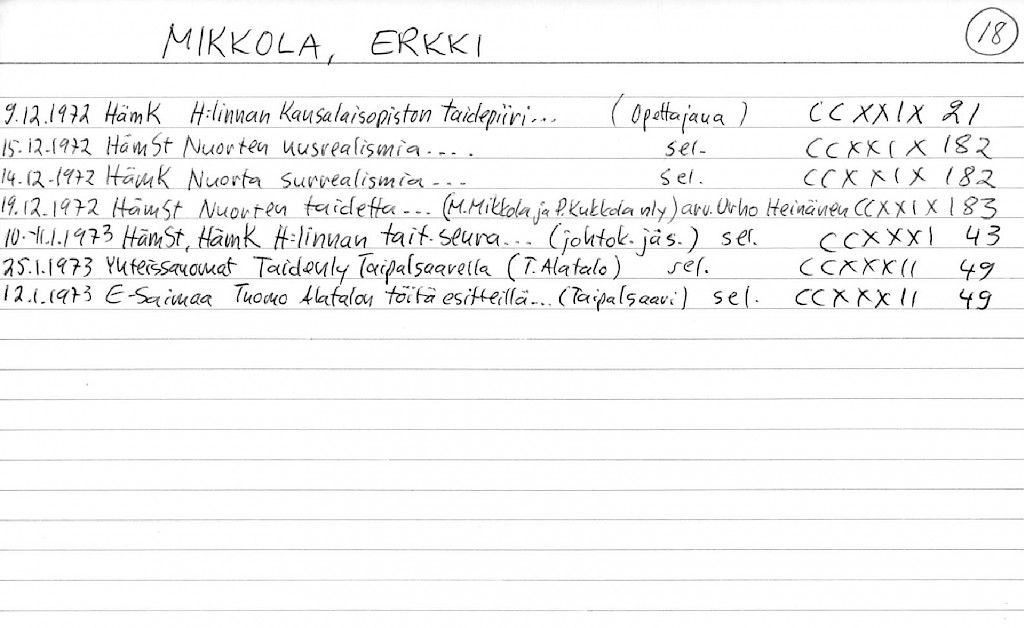 MIKKOLA, ERKKI
18
9.12.1972 HämK H:linnan Kansalaisopiston taidepiiri... (Opettajana) CCXXIX 21
15.12.1972 HämSt Nuorten uusrealismia.... sel. CCXXIX 182
14.12.1972 HämK Nuorta surrealismia... sel. CCXXIX 182
19.12.1972 HämSt Nuorten taidetta... (M.Mikkola ja P.Kukkola nly) arv. Urho Heinänen CCXXIX 183
10.-11.1.1973 HämSt, HämK H:linnan tait.seura... (johtok. jäs.) sel. CCXXXI 43
25.1.1973 Yhteissanomat Taidenly Taipalsaarella (T. Alatalo) sel. CCXXXII 49
12.1.1973 E-Saimaa Tuomo Alatalon töitä esitteillä... (Taipalsaari) sel. CCXXXII 49